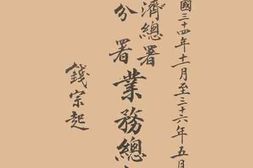 國三十四年十一月至三十六年五月
濟總署
分署業務總
錢宗起